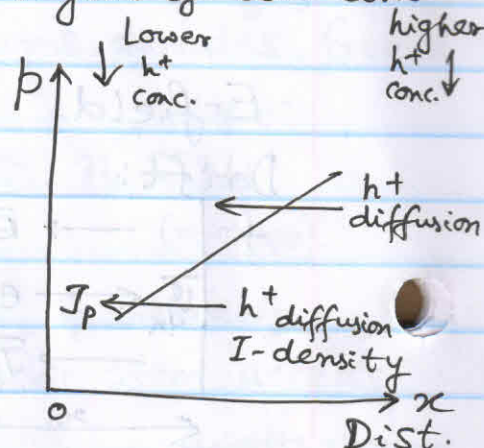 Lower
h+
conc.
higher
h+
conc.
p
h+
diffusion
Jp
h+ diffusion
I-density
0
x
Dist.